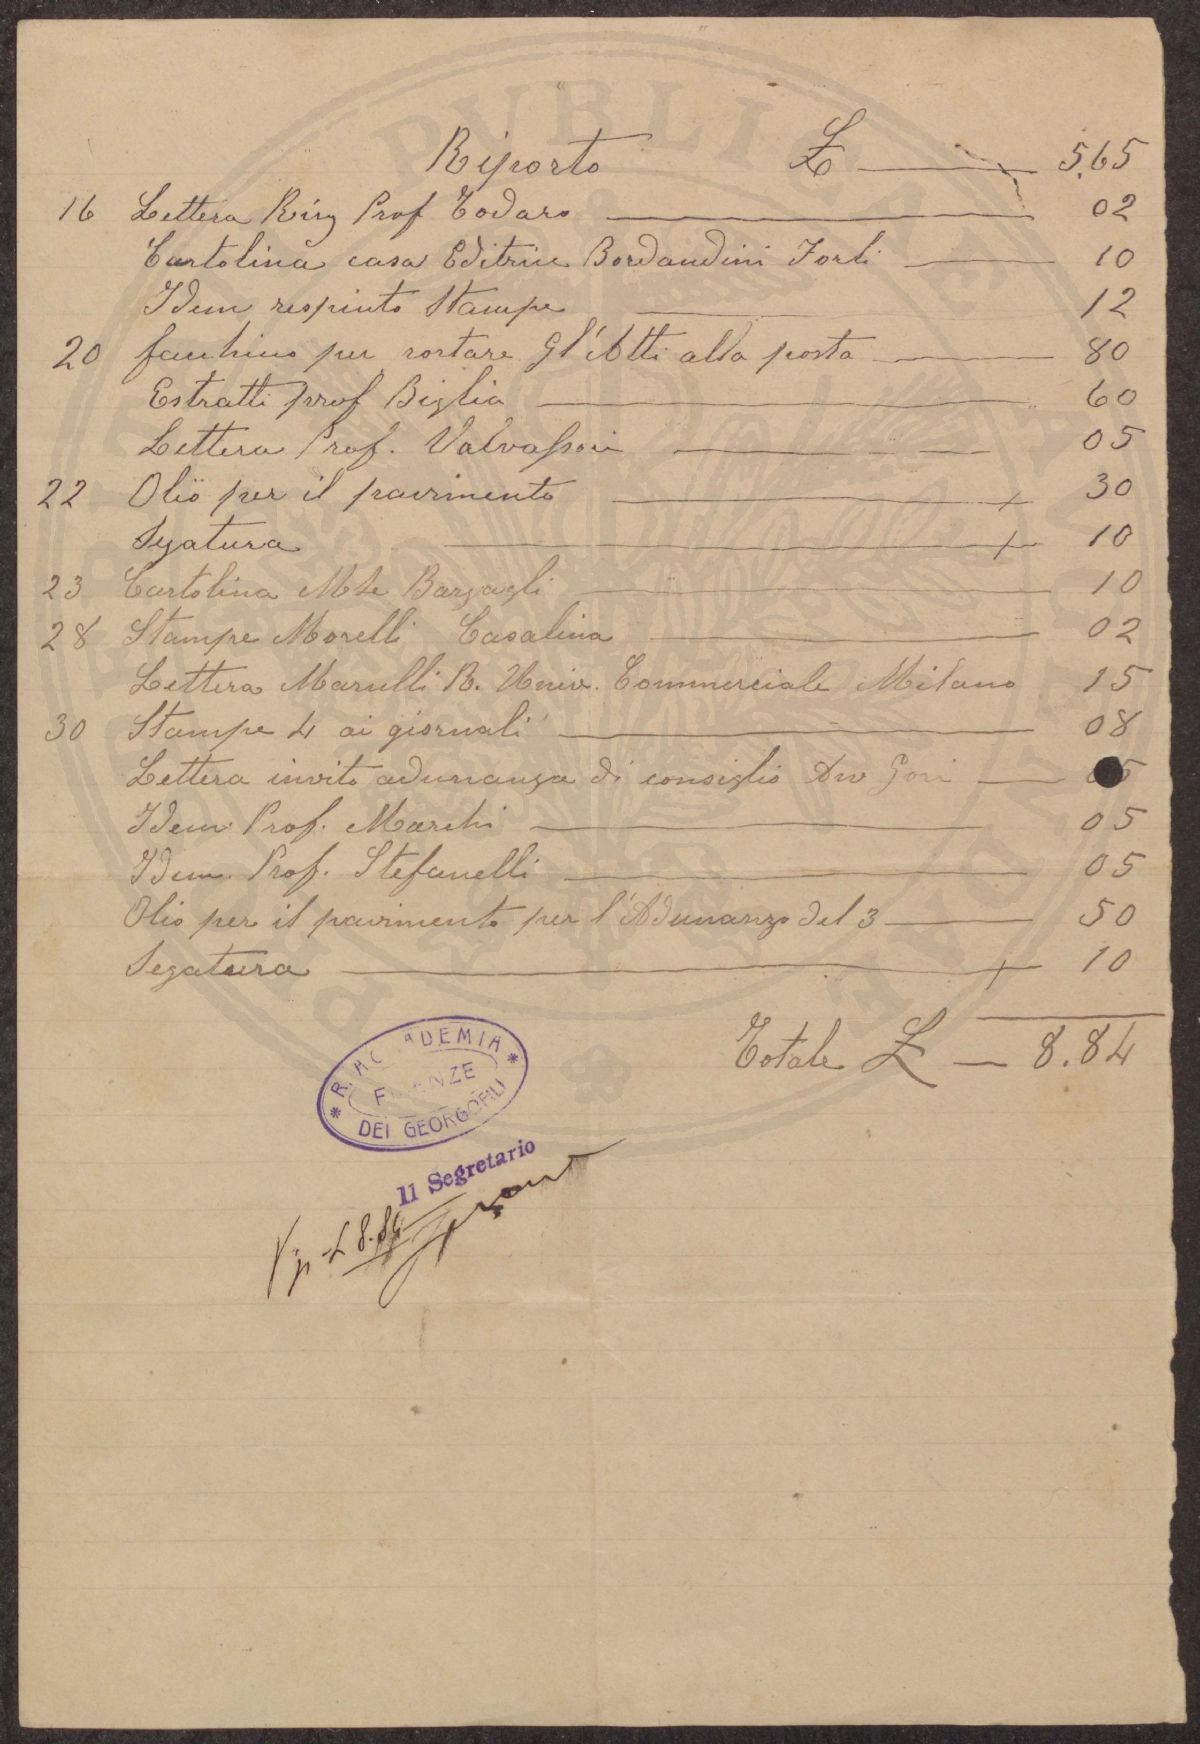 Riporto £ 5,65
16 Lettera Ring Prof Todaro 02
Cartolina casa Editrice Bordandini Forli 10
Idem respinto Stampe 12
20 facchino per portare Gl'Atti alla posta 80
Estratti prof Biglia 60
Lettera Prof. Valvassori 05
22 Olio per il pavimento 30
Segatura 10
23 Cartolina Barzagli 10
28 Stampe Morelli Casalina 02
Lettera Marulli R. Univ. Commerciale Milano 15
30 Stampe 4 ai giornali 08
Lettera invito adunanza di consiglio Avv Gori 05
Idem. Prof. Marchi 05
Idem. Prof. Stefanelli 05
Olio per il pavimento per l'Adunanza del 3 50
Segatura 10
Totale £ 8.84
R. ACCADEMIA
FIRENZE
DEI GEORGOFILI
Il Segretario
£ 8.84